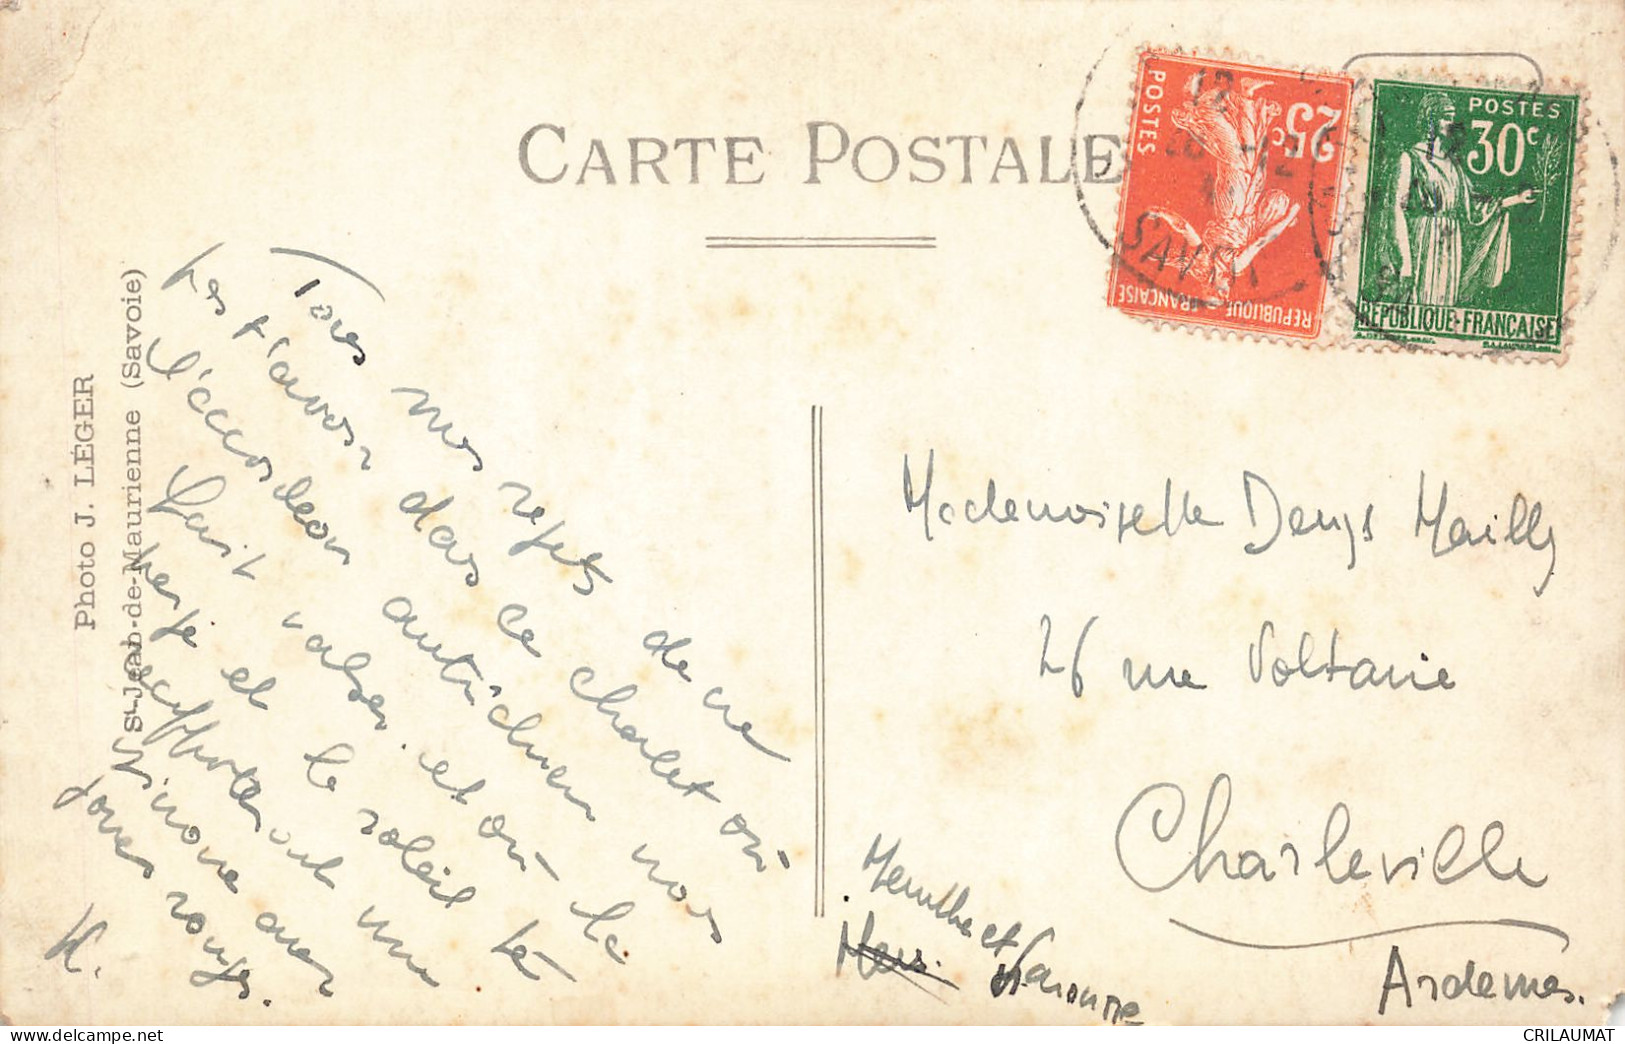 CARTE POSTALE
POSTES
25c
REPUBLIQUE FRANÇAISE
POSTES
30c
REPUBLIQUE-FRANÇAISE
12
SAVOI
Photo J. LÉGER
St-Jean-de-Maurienne (Savoie)
Tous nos regrets de ne
pas t'avoir dans ce chalet où
l'accordéon autrichien nous
valses et où la
neige et le soleil te
une
aux
joues rouges.
K.
Mademoiselle Denys Mailly
26 rue Voltaire
Charleville
Ardennes.
Meurthe et
CRILAUMAT